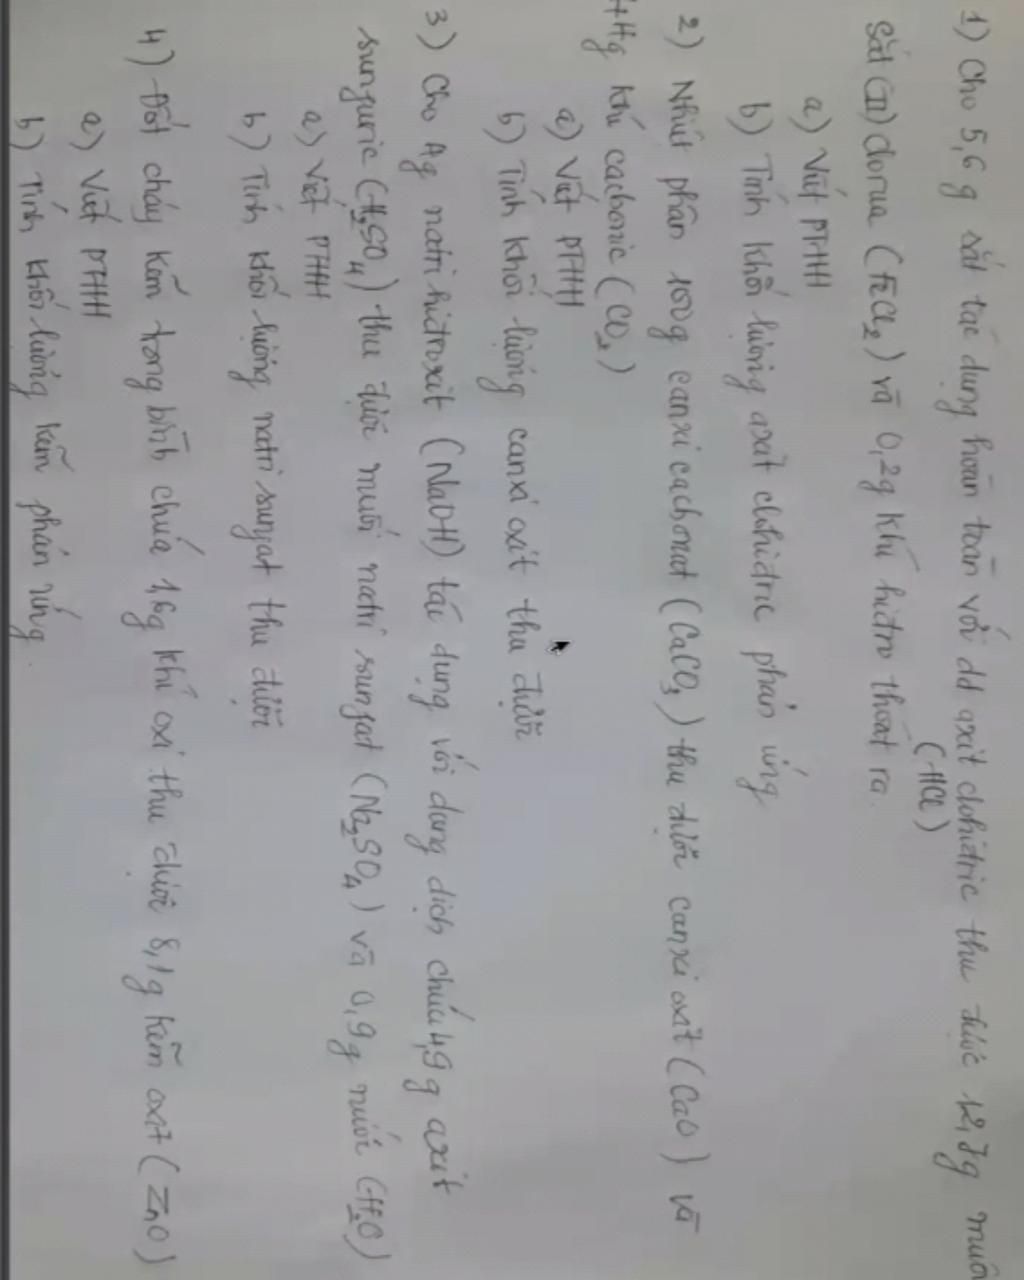 1) Cho 5,6 g sắt tác dụng hoàn toàn với dd axit clohiđric thu được 12,7g muối
(HCl)
Sắt (II) clorua (FeCl₂) và 0,2g khí hiđro thoát ra.
a) Viết PTHH
b) Tính khối lượng axit clohiđric phản ứng
2) Nhiệt phân 100g canxi cacbonat (CaCO₃) thu được canxi oxit (CaO) và
44g khí cacbonic (CO₂)
a) Viết PTHH
b) Tính khối lượng canxi oxit thu được
3) Cho 4g natri hiđroxit (NaOH) tác dụng với dung dịch chứa 4,9 g axit
sunguric (H₂SO₄) thu được muối natri sunfat (Na₂SO₄) và 0,9g nước (H₂O)
a) Viết PTHH
b) Tính khối lượng natri sunfat thu được
4) Đốt cháy kẽm trong bình chứa 1,6g khí oxi thu được 8,1g kẽm oxit (ZnO)
a) Viết PTHH
b) Tính khối lượng kẽm phản ứng.